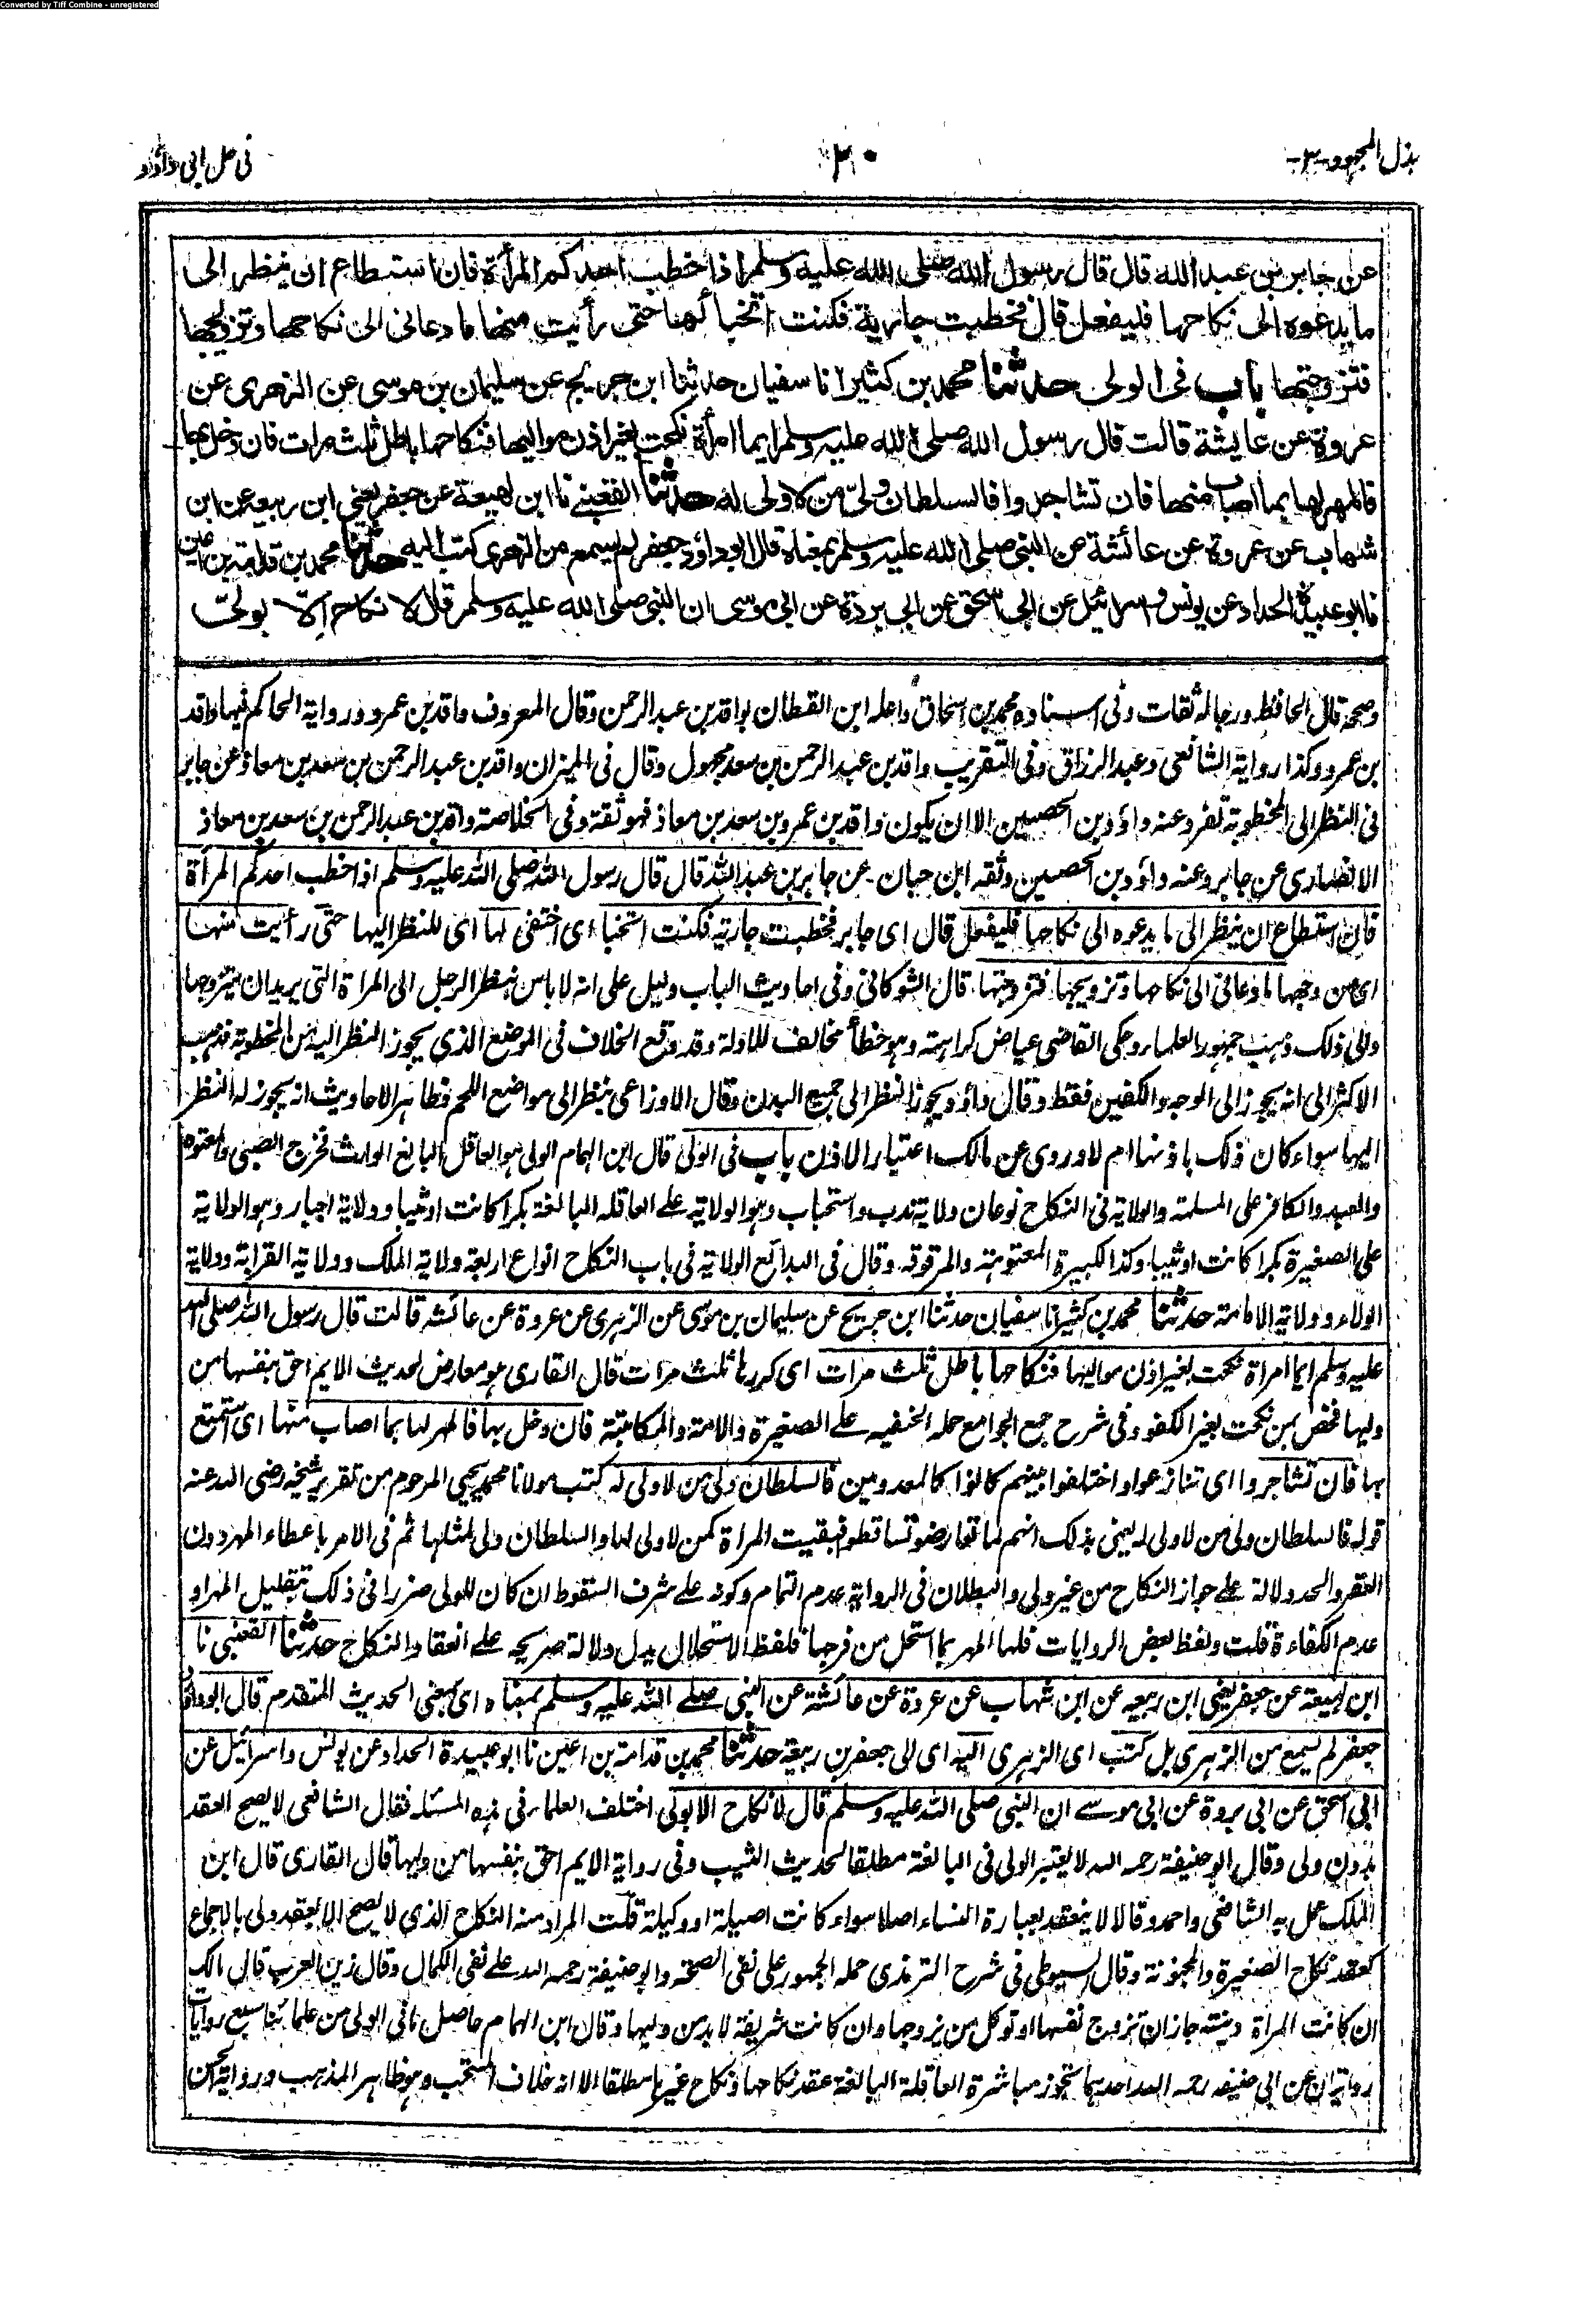 Converted by Tiff Combine - unregistered
بذل المجهود-٣-
٢٠
فی حل ابی داؤد
عن جابر بن عبد الله قال قال رسول الله صلی الله علیه وسلم اذا خطب احدكم المرأة فان استطاع ان ینظر الی
ما یدعوه الی نكاحها فلیفعل قال فخطبت جاریة فكنت اتخبأ لها حتی رأیت منها ما دعانی الی نكاحها وتزویجها
فتزوجتها باب فی الولی حدثنا محمد بن كثیر انا سفیان حدثنا ابن جریج عن سلیمان بن موسی عن الزهری عن
عروة عن عایشة قالت قال رسول الله صلی الله علیه وسلم ایما امرأة نكحت بغیر اذن موالیها فنكاحها باطل ثلث مرات فان دخل بها
فالمهر لها بما اصاب منها فان تشاجروا فالسلطان ولیّ من لا ولی له حدثنا القعنبی نا ابن لهیعة عن جعفر یعنی ابن ربیعه عن ابن
شهاب عن عروة عن عائشة عن النبی صلی الله علیه وسلم بمعناه قال ابو داؤد جعفر لم یسمع من الزهری كتب الیه حدثنا محمد بن قدامة بن اعین
نا ابو عبیدة الحداد عن یونس واسرائیل عن ابی اسحق عن ابی بردة عن ابی موسی ان النبی صلی الله علیه وسلم قال لا نكاح الّا بولیّ
وصححه قال الحافظ ورجاله ثقات وفی اسناده محمد بن اسحاق واعله ابن القطان بواقد بن عبد الرحمن وقال المعروف واقد بن عمرو ورواية الحاكم فیها واقد
بن عمرو وكذا رواية الشافعی وعبد الرزاق وفی التقریب واقد بن عبد الرحمن بن سعد مجهول وقال فی المیزان واقد بن عبد الرحمن بن سعد بن معاذ عن جابر
فی النظر الی المخطوبة تفرد عنه داؤد بن الحصین الا ان یكون واقد بن عمرو بن سعد بن معاذ فهو ثقة وفی الخلاصة واقد بن عبد الرحمن بن سعد بن معاذ
الانصاری عن جابر وعنه داؤد بن الحصین وثقه ابن حبان - عن جابر بن عبد الله قال قال رسول الله صلی الله علیه وسلم اذا خطب احدكم المرأة
فان استطاع ان ینظر الی ما یدعوه الی نكاحها فلیفعل قال ای جابر فخطبت جاریة فكنت اتخبأ ای اختفی لها ای للنظر الیها حتی رأیت منها
ای من وجهها ما دعانی الی نكاحها وتزویجها فتزوجتها. قال الشوكانی وفی احادیث الباب دلیل علی انه لا باس بنظر الرجل الی المراة التی یرید ان یتزوجها
والی ذلك ذهب جمهور العلماء وحكی القاضی عیاض كراهته وهو خطأ مخالف للادلة وقد وقع الخلاف فی الموضع الذی یجوز النظر الیه من المخطوبة فذهب
الاكثر الی انه یجوز الی الوجه والكفین فقط وقال داؤد یجوز النظر الی جمیع البدن وقال الاوزاعی ینظر الی مواضع اللحم وظاهر الاحادیث انه یجوز له النظر
الیها سواء كان ذلك باذنها ام لا وروی عن مالك اعتبار الاذن باب فی الولی قال ابن الهمام الولی هو العاقل البالغ الوارث فخرج الصبی والمعتوه
والعبد والكافر علی المسلمة والولاية فی النكاح نوعان ولاية ندب واستحباب وهو الولاية علی العاقله البالغة بكرا كانت او ثیبا وولاية اجبار وهو الولاية
علی الصغیرة بكرا كانت او ثیبا وكذا الكبیرة المعتوهة والمرقوقه. وقال فی البدائع الولاية فی باب النكاح انواع اربعة ولاية الملك وولاية القرابة وولاية
الولاء وولاية الامامة حدثنا محمد بن كثیر انا سفیان حدثنا ابن جریج عن سلیمان بن موسی عن الزهری عن عروة عن عائشه قالت قال رسول الله صلی الله
علیه وسلم ایما امراة نكحت بغیر اذن موالیها فنكاحها باطل ثلث مرات ای كررها ثلث مرات قال القاری هو معارض لحدیث الایم احق بنفسها من
ولیها فخص بمن نكحت بغیر الكفو وفی شرح جمع الجوامع حمله الحنفیه علی الصغیرة والامة والمكاتبة فان دخل بها فالمهر لها بما اصاب منها ای استمتع
بها فان تشاجروا ای تنازعوا واختلفوا بینهم كانوا كالمعدومین فالسلطان ولی من لا ولی له كتب مولانا محمد یحیی المرحوم من تقریر شیخه رضی الله عنه
قوله فالسلطان ولی من لا ولی له یعنی بذلك انهم لما تعارضوا تساقطوا فبقیت المراة كمن لا ولی لها والسلطان ولی لمثلها ثم فی الامر باعطاء المهر دون
العقر والحد دلالة علی جواز النكاح من غیر ولی والبطلان فی الرواية عدم التمام وكونه علی شرف السقوط ان كان للولی ضررا فی ذلك بتقلیل المهر او
عدم الكفاءة قلت ولفظ بعض الروایات فلها المهر بما استحل من فرجها فلفظ الاستحلال یدل دلالة صریحه علی انعقاد النكاح حدثنا القعنبی نا
ابن لهیعة عن جعفر یعنی ابن ربیعه عن ابن شهاب عن عروة عن عائشة عن النبی صلی الله علیه وسلم بمعناه ای بمعنی الحدیث المتقدم قال ابو داؤد
جعفر لم یسمع من الزهری بل كتب ای الزهری الیه ای الی جعفر بن ربیعة حدثنا محمد بن قدامة بن اعین نا ابو عبیدة الحداد عن یونس واسرائیل عن
ابی اسحق عن ابی بردة عن ابی موسی ان النبی صلی الله علیه وسلم قال لا نكاح الا بولی اختلف العلماء فی هذه المسئله فقال الشافعی لا یصح العقد
بدون ولی وقال ابو حنیفة رحمه الله لا یعتبر الولی فی البالغة مطلقا لحدیث الثیب وفی رواية الایم احق بنفسها من ولیها قال القاری قال ابن
الملك عمل به الشافعی واحمد وقالا لا ینعقد بعبارة النساء اصلا سواء كانت اصیلة او وكیلة قلت المراد منه النكاح الذی لا یصح الا بعقد ولی بالاجماع
كعقد نكاح الصغیرة والمجنونة وقال السیوطی فی شرح الترمذی حمله الجمهور علی نفی الصحة وابو حنیفة رحمه الله علی نفی الكمال وقال زین العرب قال مالك
ان كانت المرأة دنیئة جاز ان تزوج نفسها او توكل من یزوجها وان كانت شریفة لا بد من ولیها وقال ابن الهمام حاصل ما فی الولی من علمائنا سبع روایات
روایتان عن ابی حنیفه رحمه الله احدیهما تجوز مباشرة العاقلة البالغة عقد نكاحها ونكاح غیرها مطلقا الا انه خلاف المستحب وهو ظاهر المذهب ورواية الحسن